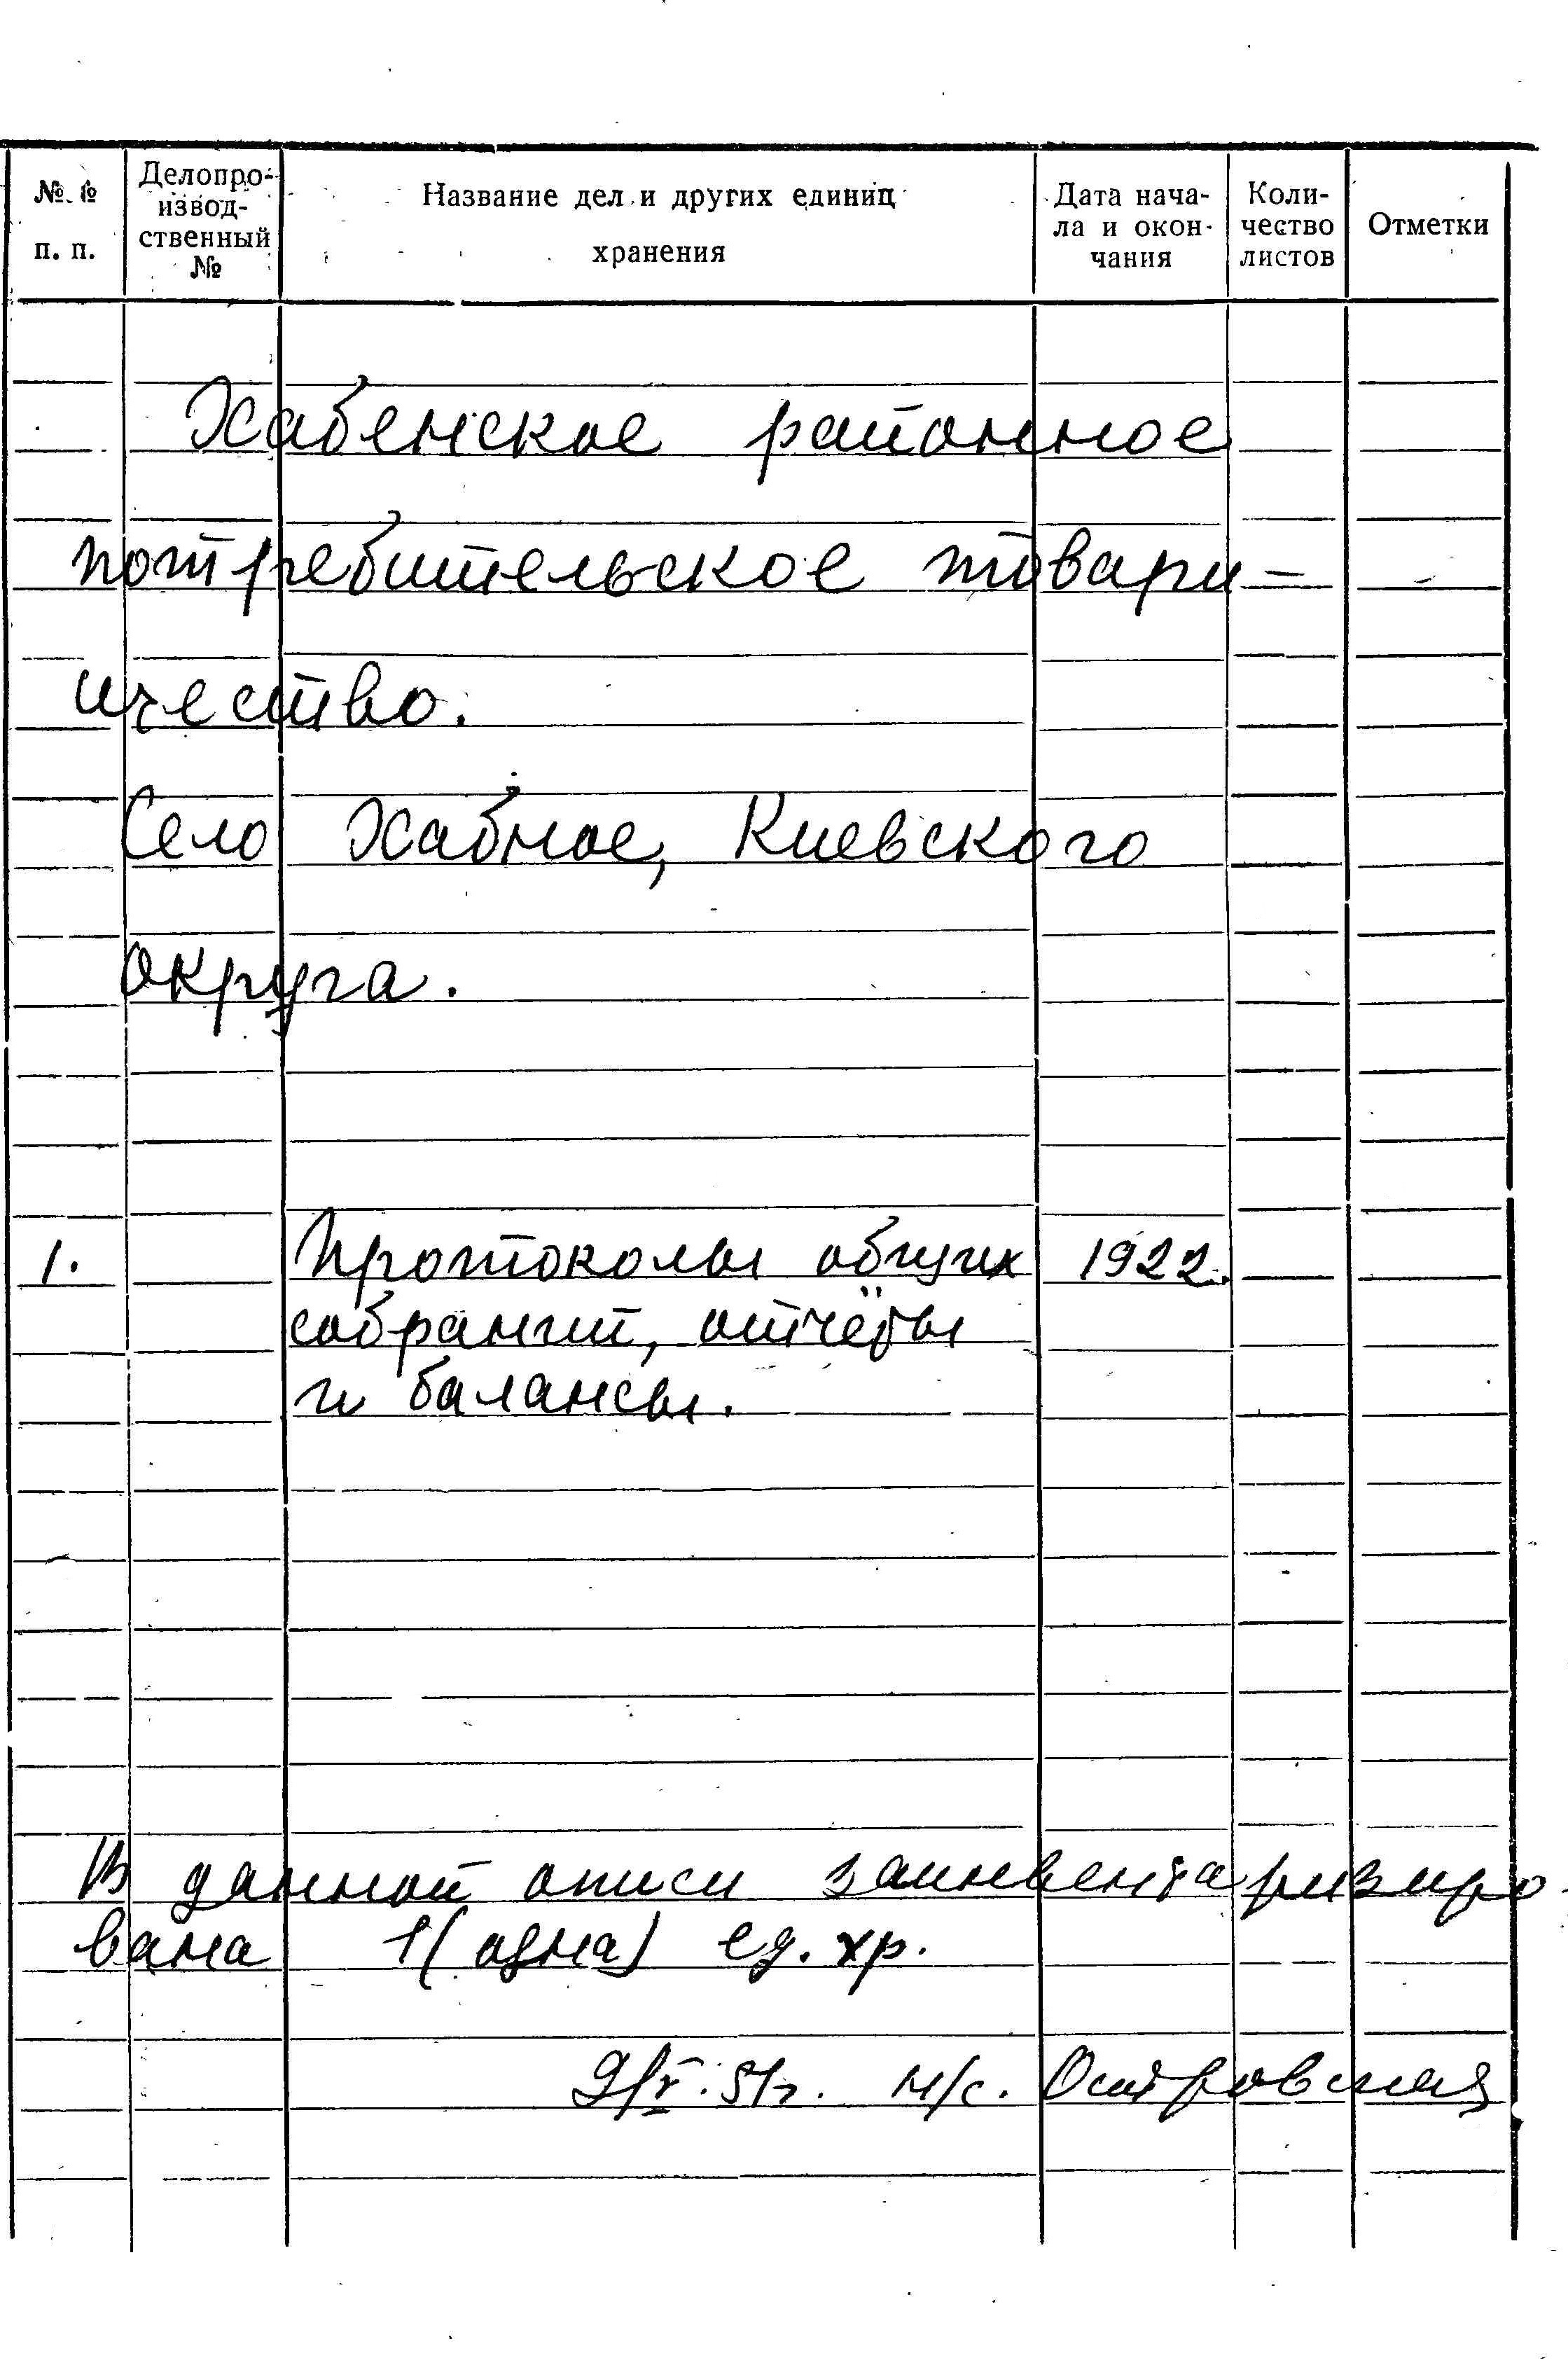 № №
п. п.
Делопро-
извод-
ственный
№
Название дел и других единиц
хранения
Дата нача-
ла и окон-
чания
Коли-
чество
листов
Отметки
Хабенское районное
потребительское товари-
щество.
Село Хабное, Киевского
округа.
1. Протоколы общих 1922.
собраний, отчёты
и балансы.
В данной описи заинвентаризиро-
вана 1 (одна) ед. хр.
9/V.51г. м/с. Островская